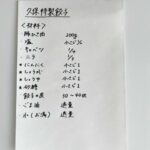 久保特製餃子
<材料>
・豚ひき肉 200g
・塩 小さじ½
・キャベツ ¼
・ニラ ½
★にんにく 小さじ1
★しょうが 小さじ1
★しょうゆ 小さじ2
★砂糖 小さじ1
・餃子の皮 30〜40枚
・ごま油 適量
・水(お湯) 適量